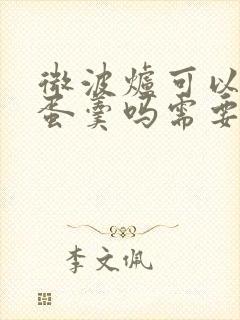 微波爐可以
蛋羹吗需要
李文佩